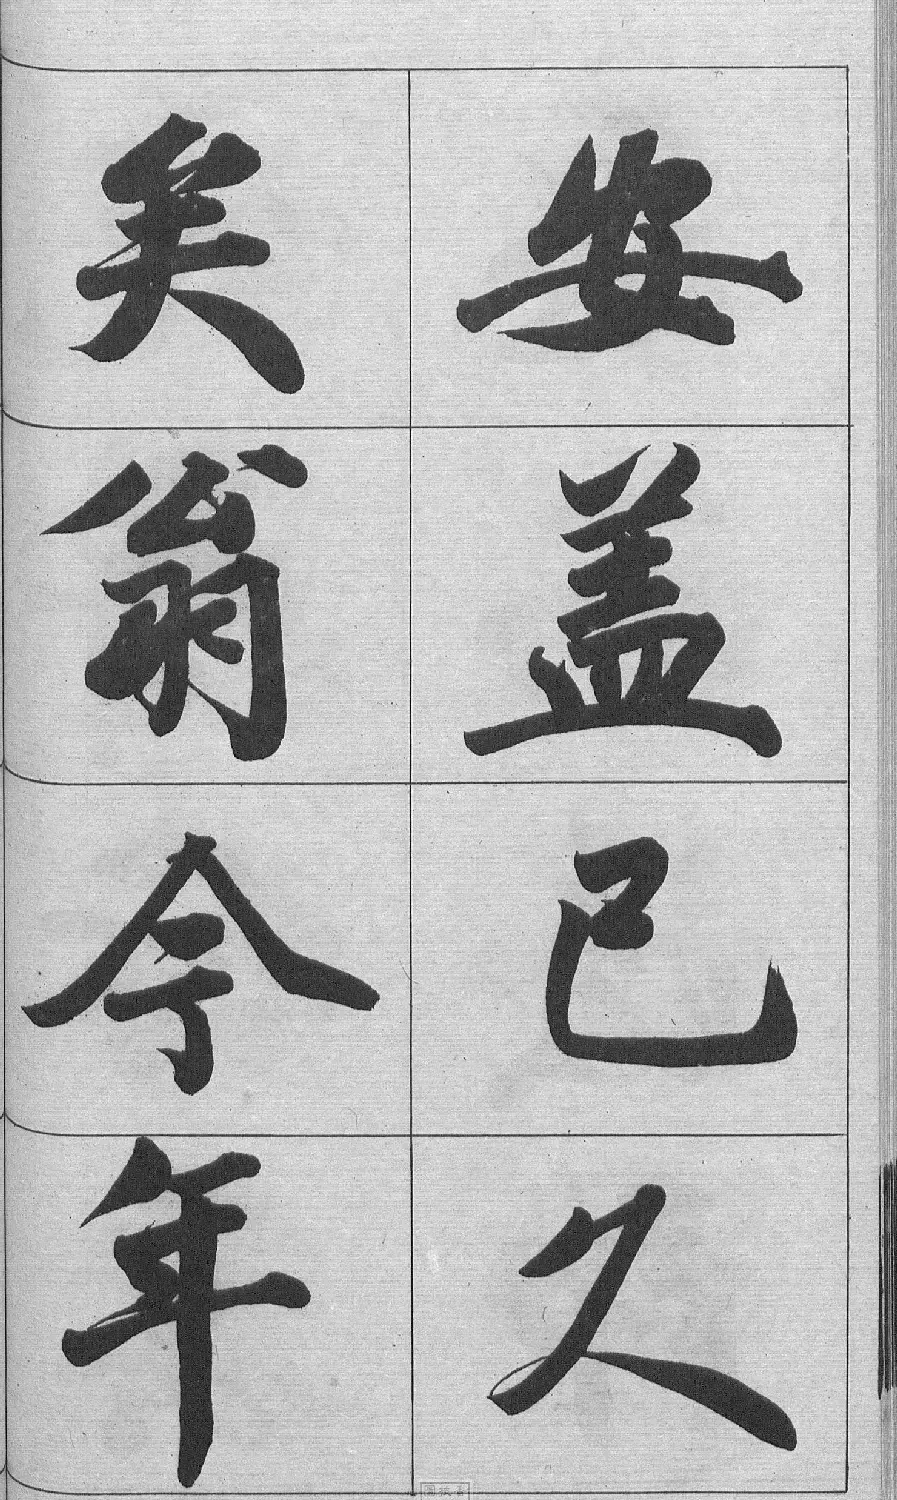 安盖已久
矣翁今年